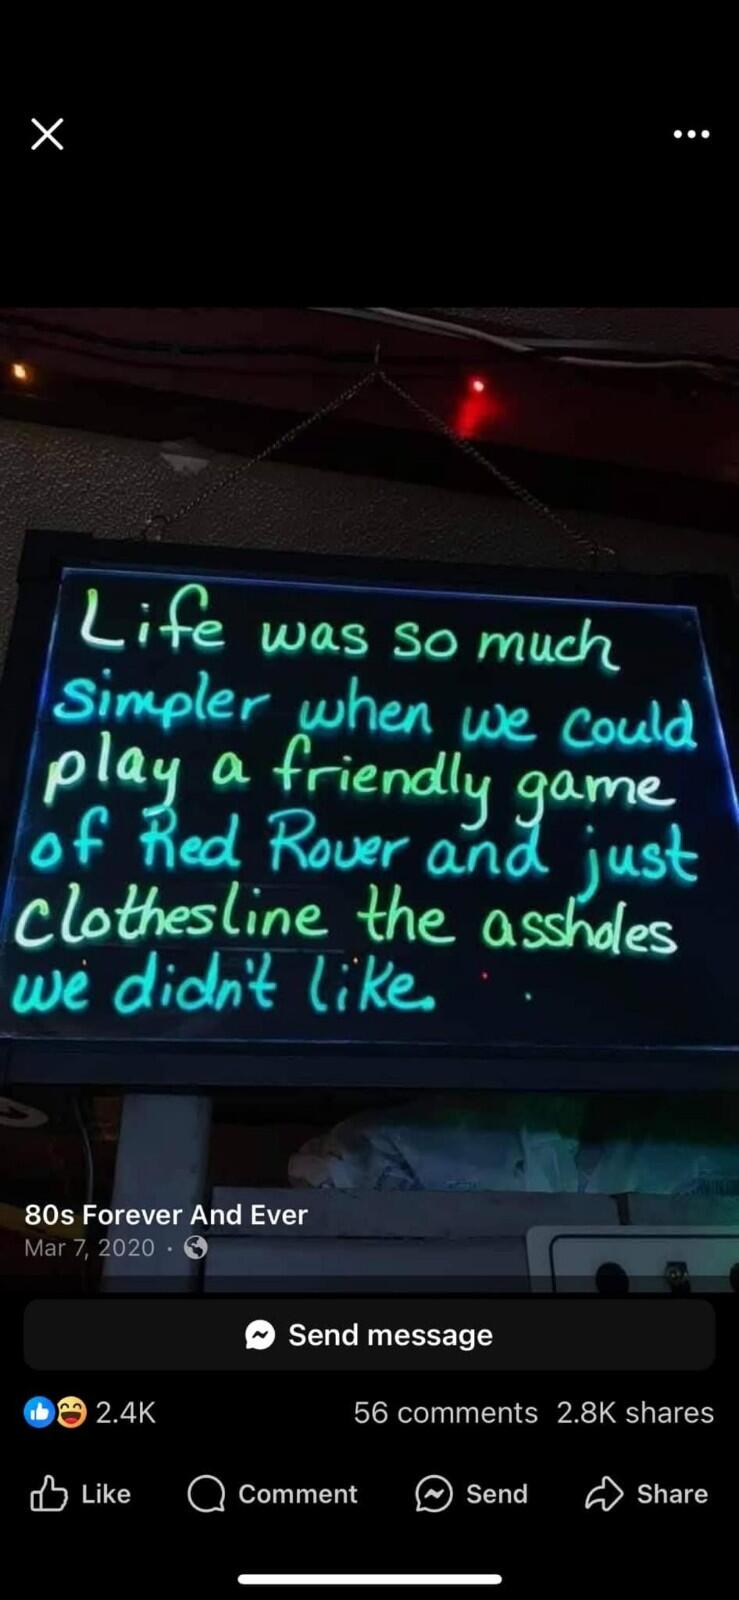 Life was so much
simpler when we could
play a friendly game
of Red Rover and just
clothesline the assholes
we didn't like.
80s Forever And Ever
Mar 7, 2020 ·
Send message
2.4K 56 comments 2.8K shares
Like Comment Send Share